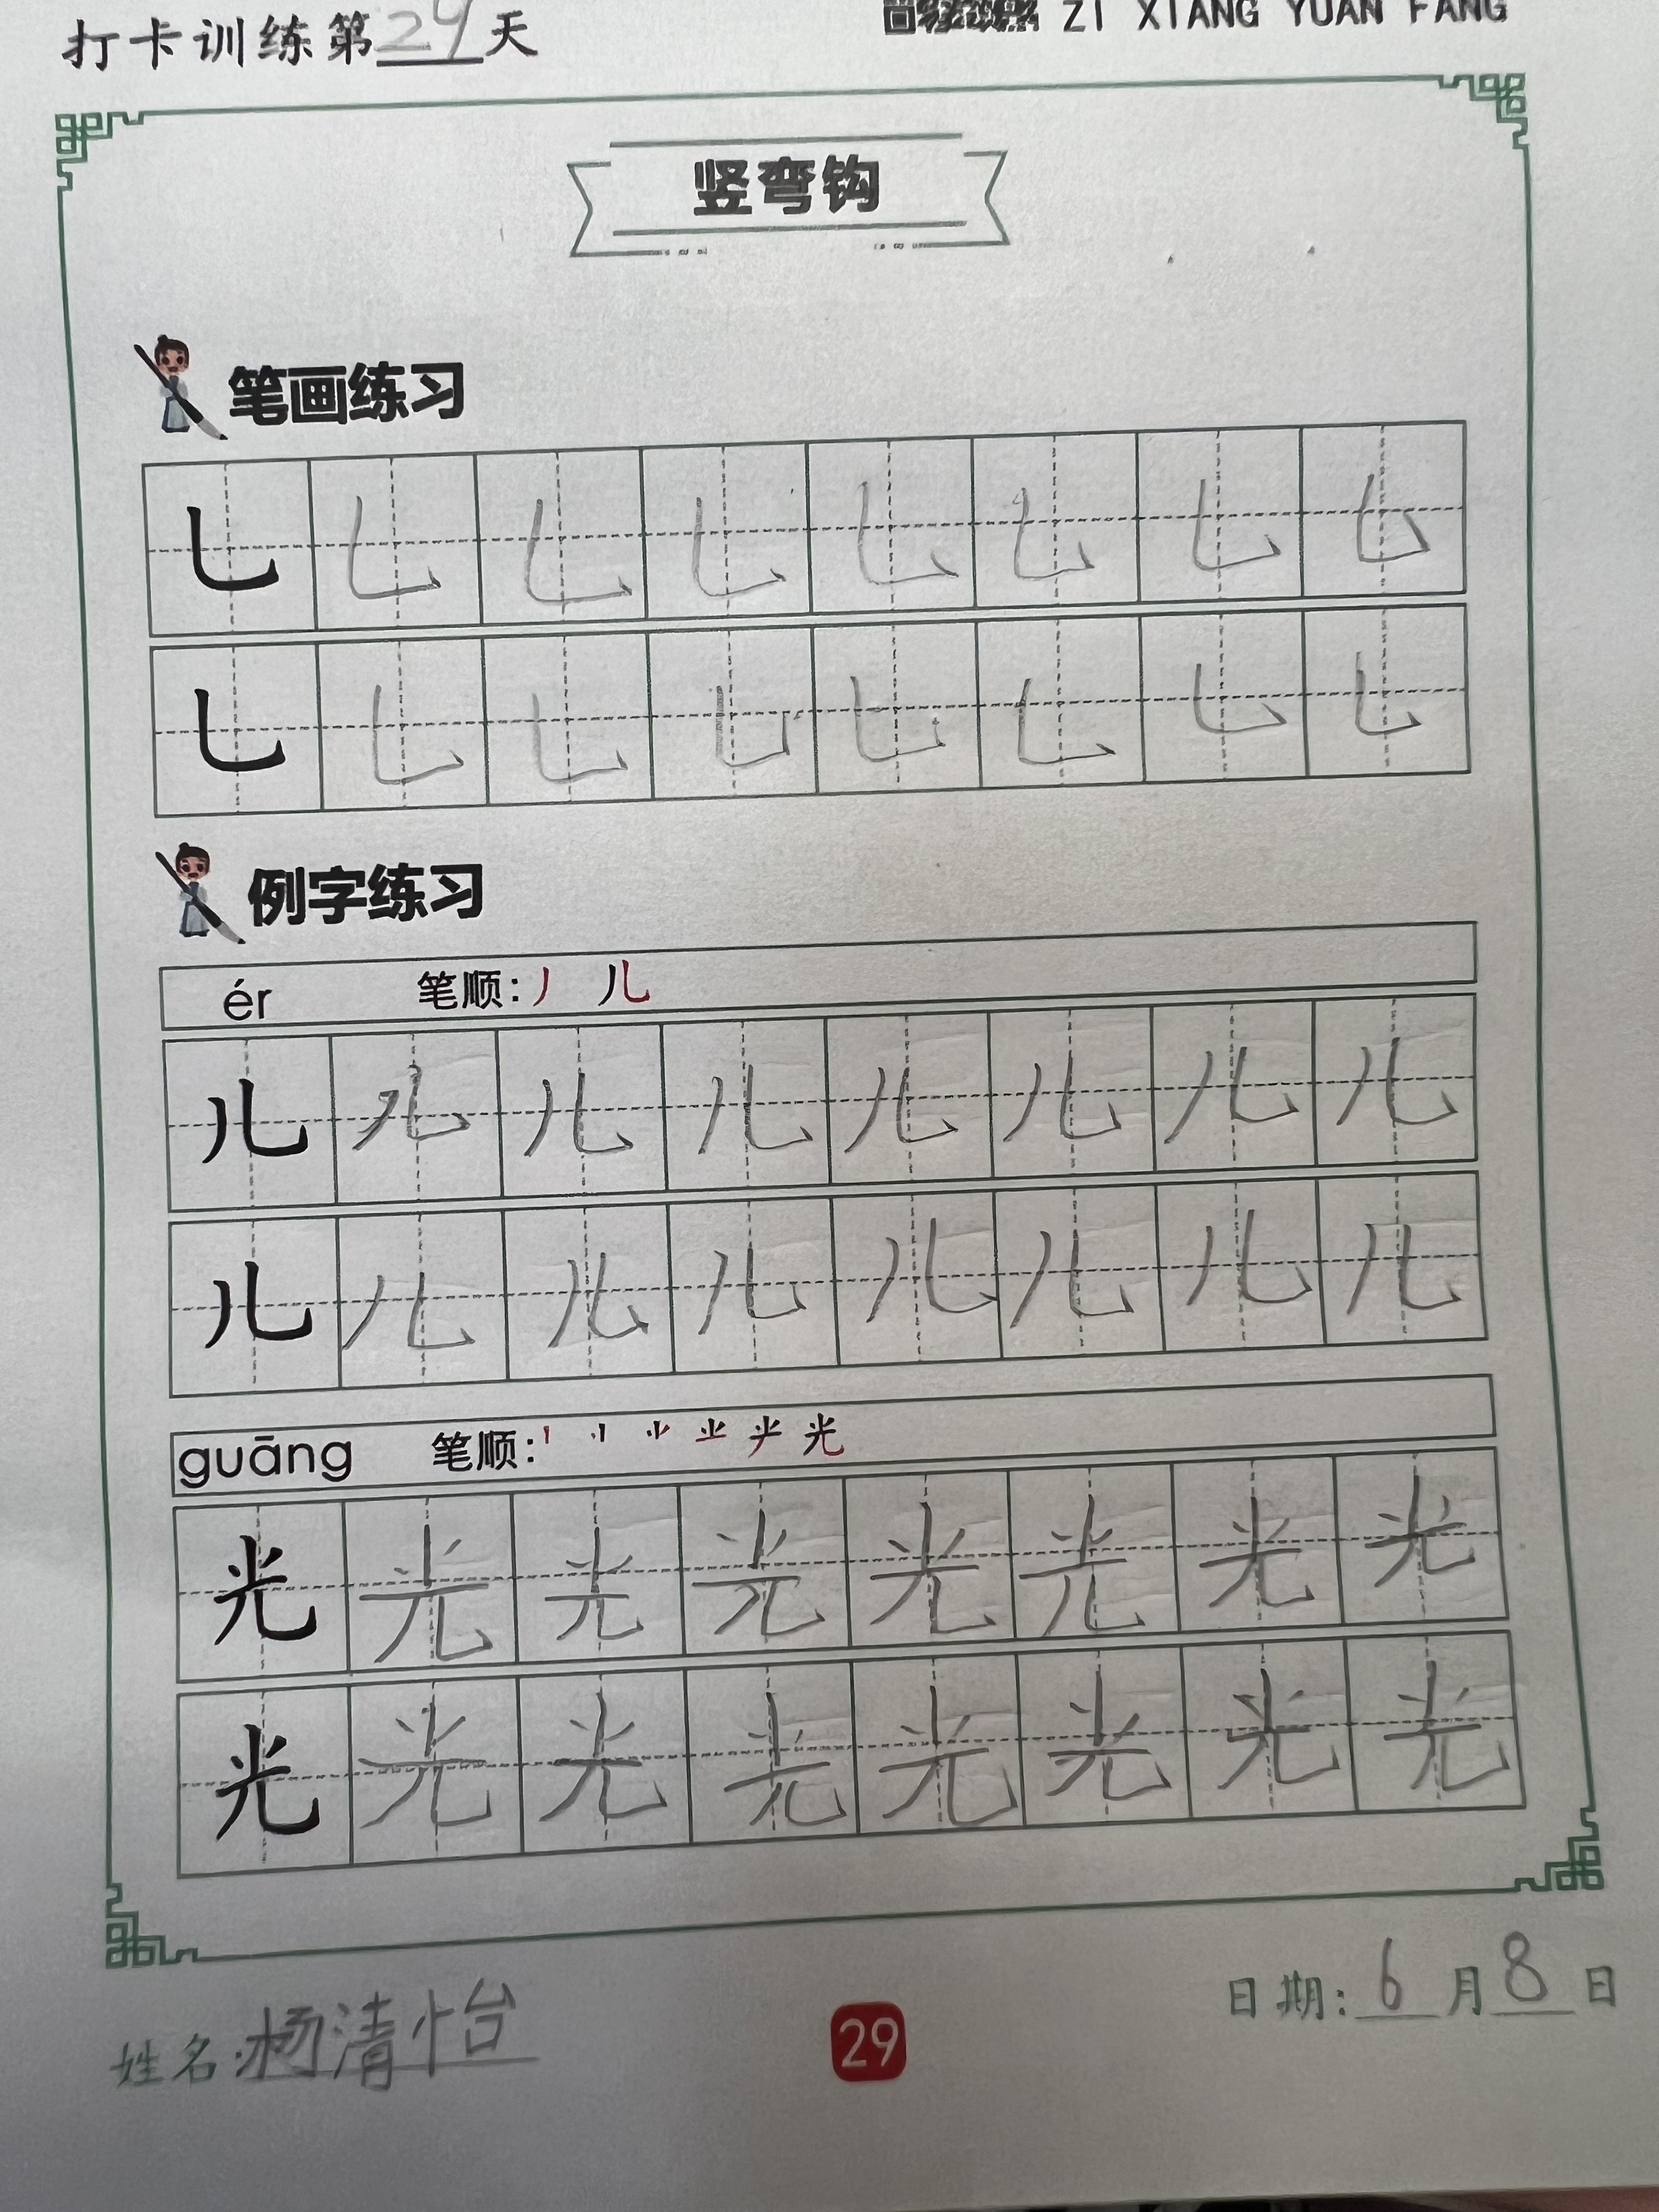 打卡训练第29天
ZI XIANG YUAN FANG
竖弯钩
笔画练习
乚 乚 乚 乚 乚 乚 乚 乚
乚 乚 乚 乚 乚 乚 乚 乚
例字练习
ér 笔顺: 丿 儿
儿 儿 儿 儿 儿 儿 儿 儿
儿 儿 儿 儿 儿 儿 儿 儿
guāng 笔顺: 光
光 光 光 光 光 光 光 光
光 光 光 光 光 光 光 光
姓名:杨清怡
29
日期:6月8日